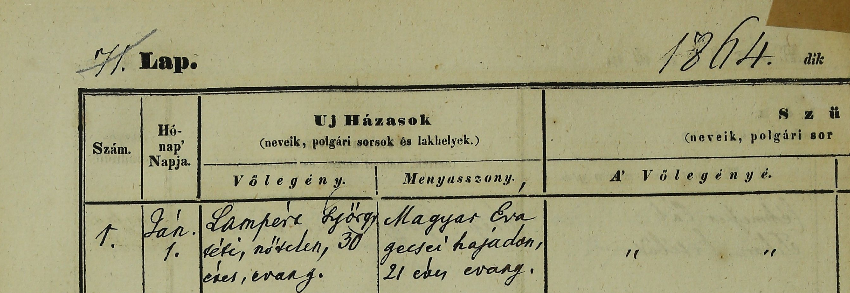 71. Lap. 1864. dik
Szám.
Hó-
nap'
Napja.
Uj Házasok
(neveik, polgári sorsok és lakhelyek.)
Vőlegény. Menyasszony.
Szü
(neveik, polgári sor
A' Vőlegényé.
1.
Ján.
1.
Lampért György
téti, nőtelen, 30
éves, evang.
Magyar Éva
gecsei hajadon,
21 éves evang.
" "